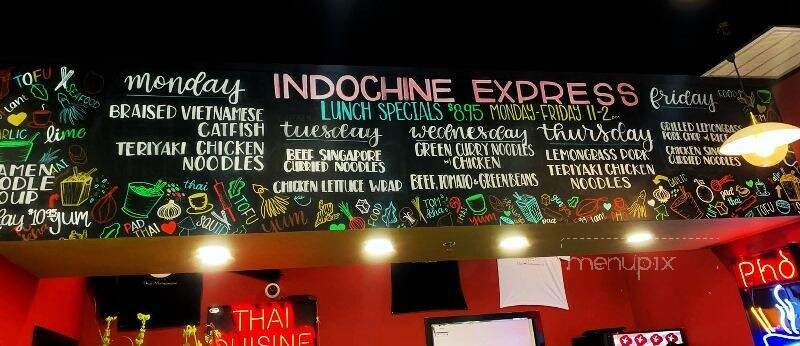 INDOCHINE EXPRESS
LUNCH SPECIALS $8.95 MONDAY-FRIDAY 11-2
monday
BRAISED VIETNAMESE
CATFISH
TERIYAKI CHICKEN
NOODLES
tuesday
BEEF SINGAPORE
CURRIED NOODLES
CHICKEN LETTUCE WRAP
wednesday
GREEN CURRY NOODLES
w/ CHICKEN
BEEF, TOMATO & GREEN BEANS
thursday
LEMONGRASS PORK
TERIYAKI CHICKEN
NOODLES
friday
GRILLED LEMONGRASS
CHICKEN
CURRIED NOODLES
TOFU
SEAFOOD
lime
NOODLE
yum
thai
PAD
THAI
TOFU
yum
FOOD
THAI
CUISINE
Phở
menupix